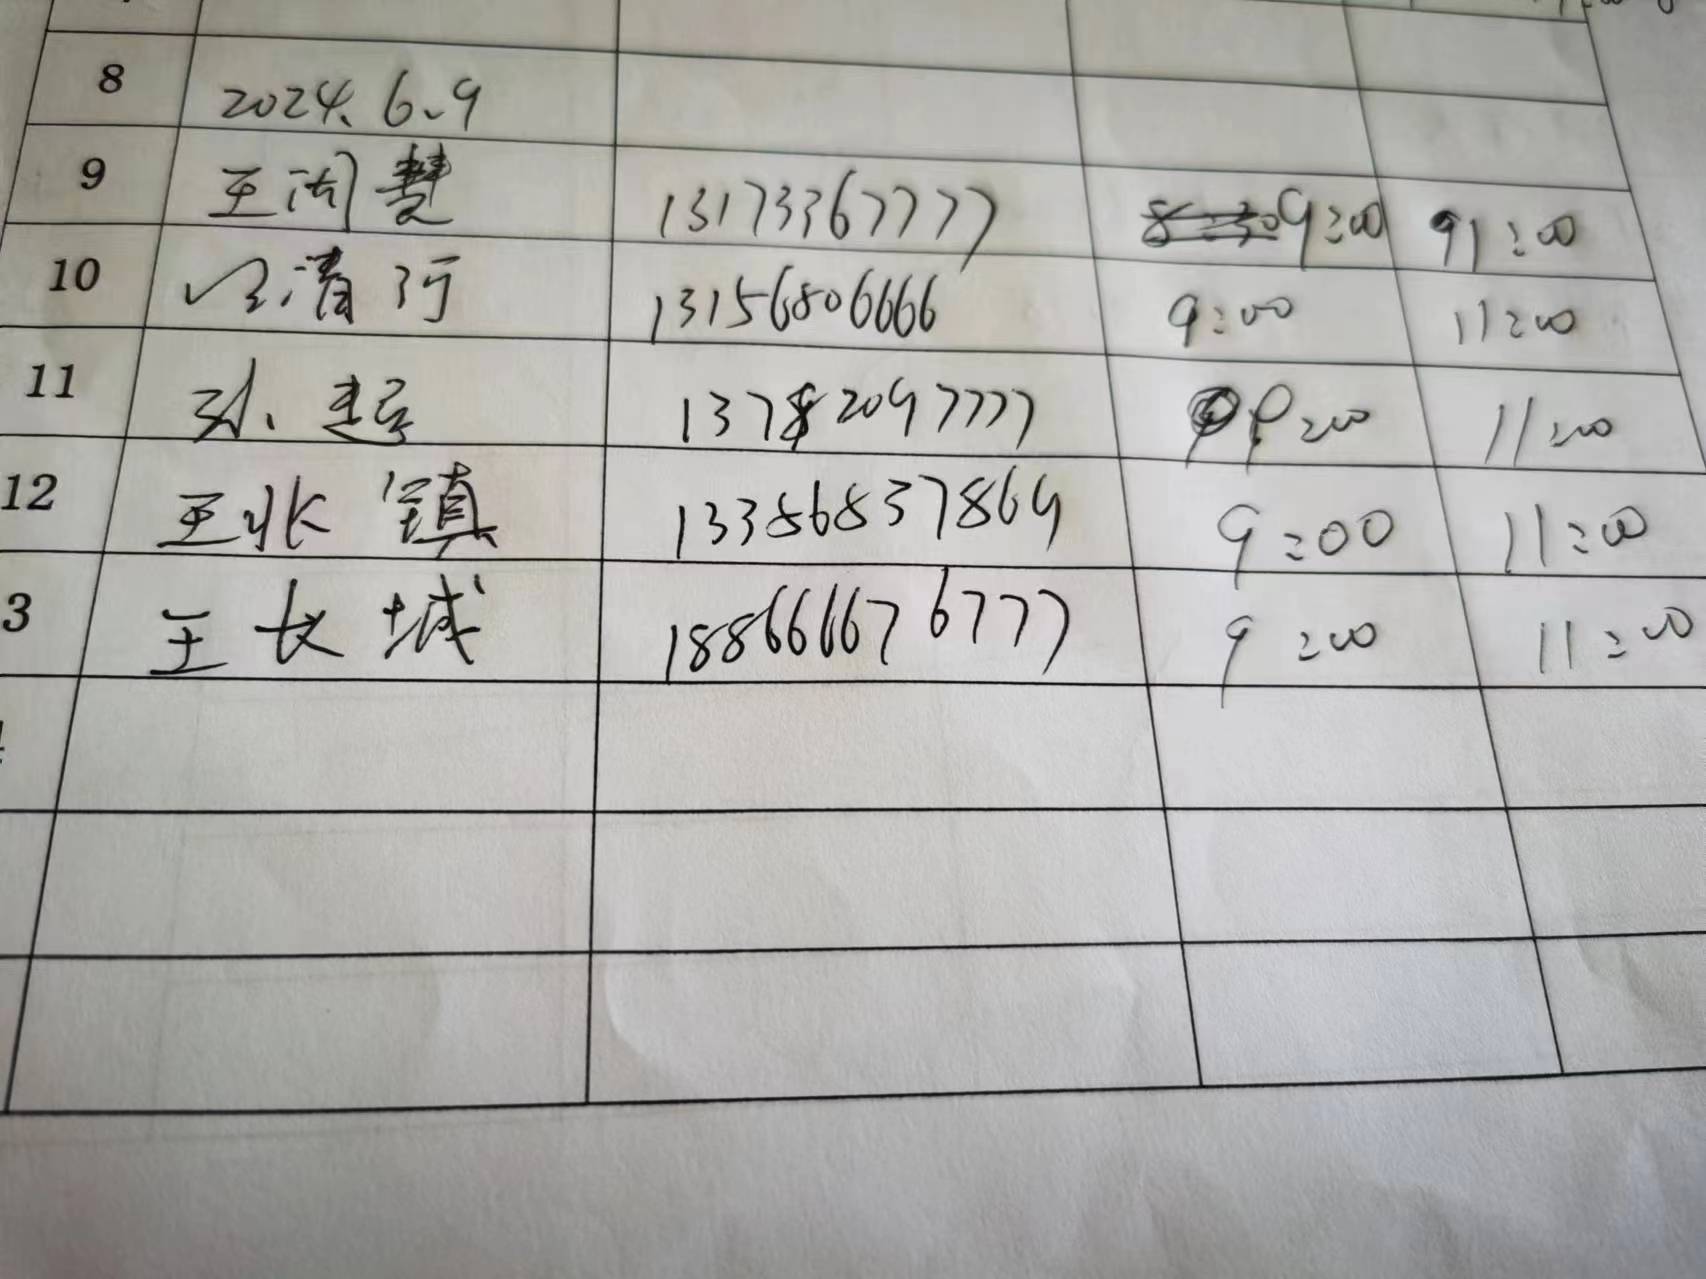 8 2024.6.9
9 王闰慧 13173367777 9:00 11:00
10 清河 13156806666 9:00 11:00
11 孙超 13782097777 9:00 11:00
12 王兆镇 13386837869 9:00 11:00
3 王长城 18866676777 9:00 11:00